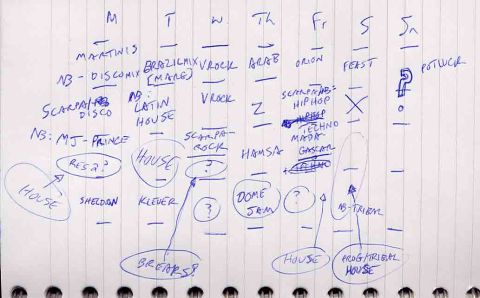 M T W Th Fr S Sn
MARTINIS BRAZILMIX VROCK ARAB ORION FEAST POTLUCK
NB - DISCOMIX [MARG]
SCARPA/ NB: VROCK Z SCARPA/NB: X
DISCO LATIN HIPHOP
HOUSE TECHNO
NB: MJ - PRINCE SCARPA- MADA-
ROCK HAMSA GASCAR
RES 2? HOUSE ?
HOUSE
SHELDON KLEVER ? DOME ? NB-TRIBAL
JAM
BREAKS? HOUSE PROG/TRIBAL
HOUSE